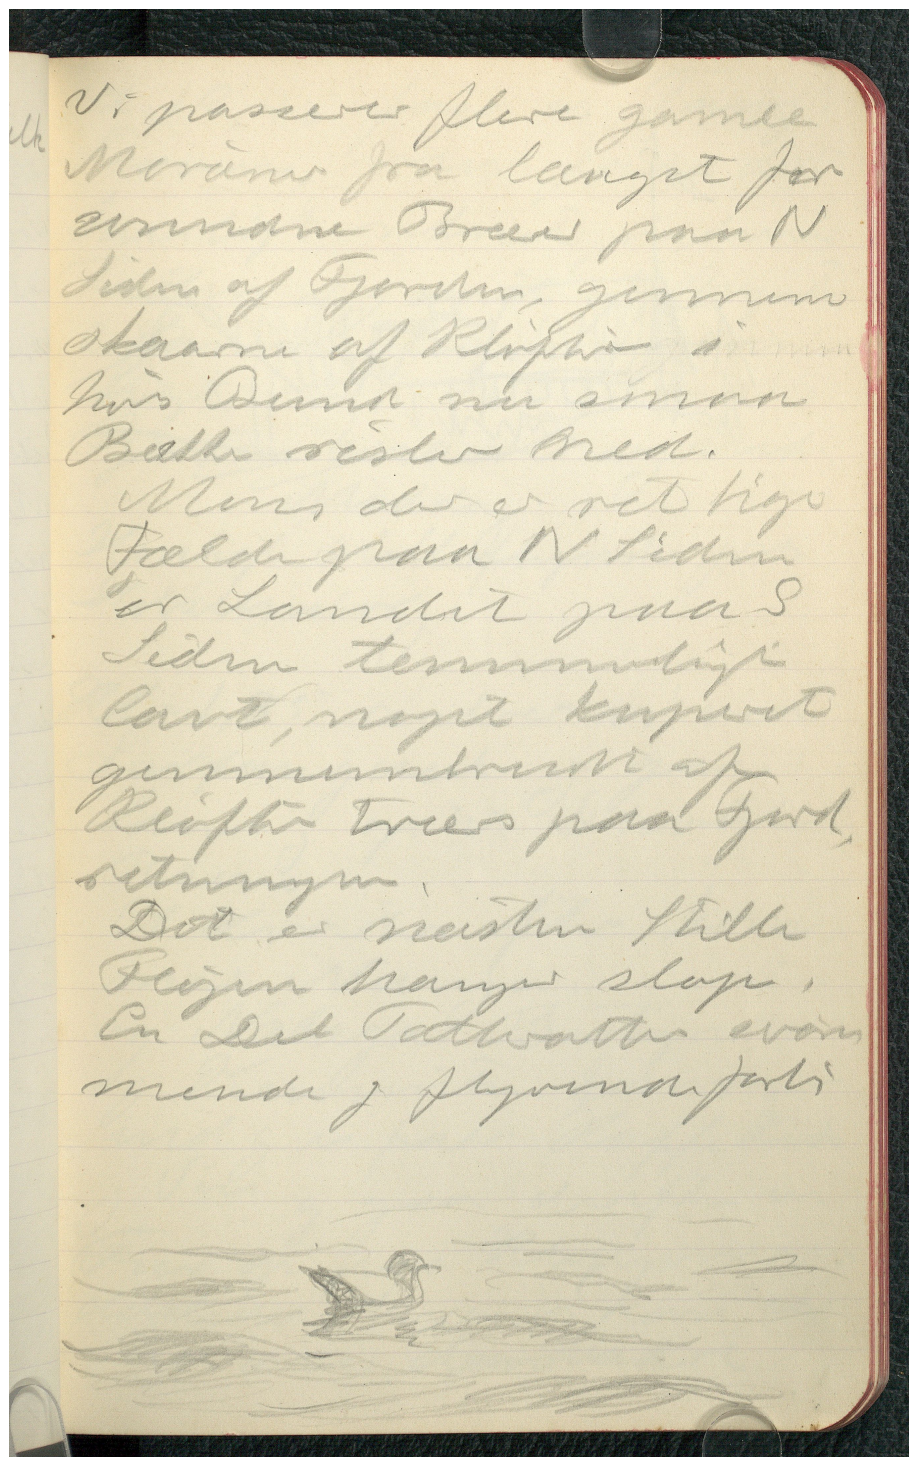 Vi passerer flere gamle
Moräner fra længst for
svundne Bræer paa N
Siden af Fjorden, gennem
skaarne af Kløfter i
hvis Bund nu smaa
Bække risler ned.
Mens der er ret høje
Fjælde paa N Siden
er Landet paa S
Siden temmeligt
lavt, noget kuperet
gennembrudt af
Kløfter tværs paa Fjord,
retningen.
Det er næsten Stille
Fløjen hænger slap.
En Del Tatteratter svöm
mende & flyvende forbi